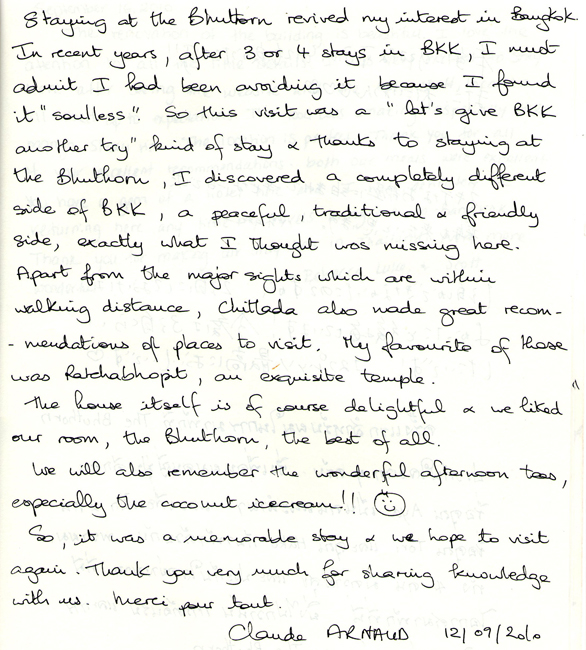 Staying at the Bhuthorn revived my interest in Bangkok
In recent years, after 3 or 4 stays in BKK, I must
admit I had been avoiding it because I found
it "soulless". So this visit was a "let's give BKK
another try" kind of stay & thanks to staying at
the Bhuthorn, I discovered a completely different
side of BKK, a peaceful, traditional & friendly
side, exactly what I thought was missing here.
Apart from the major sights which are within
walking distance, Chitlada also made great recom-
-mendations of places to visit. My favourite of those
was Ratchabhopit, an exquisite temple.
The house itself is of course delightful & we liked
our room, the Bhuthorn, the best of all.
We will also remember the wonderful afternoon teas,
especially the coconut icecream!!
So, it was a memorable stay & we hope to visit
again. Thank you very much for sharing knowledge
with us. Merci pour tout.
Claude ARNAUD 12/09/2010